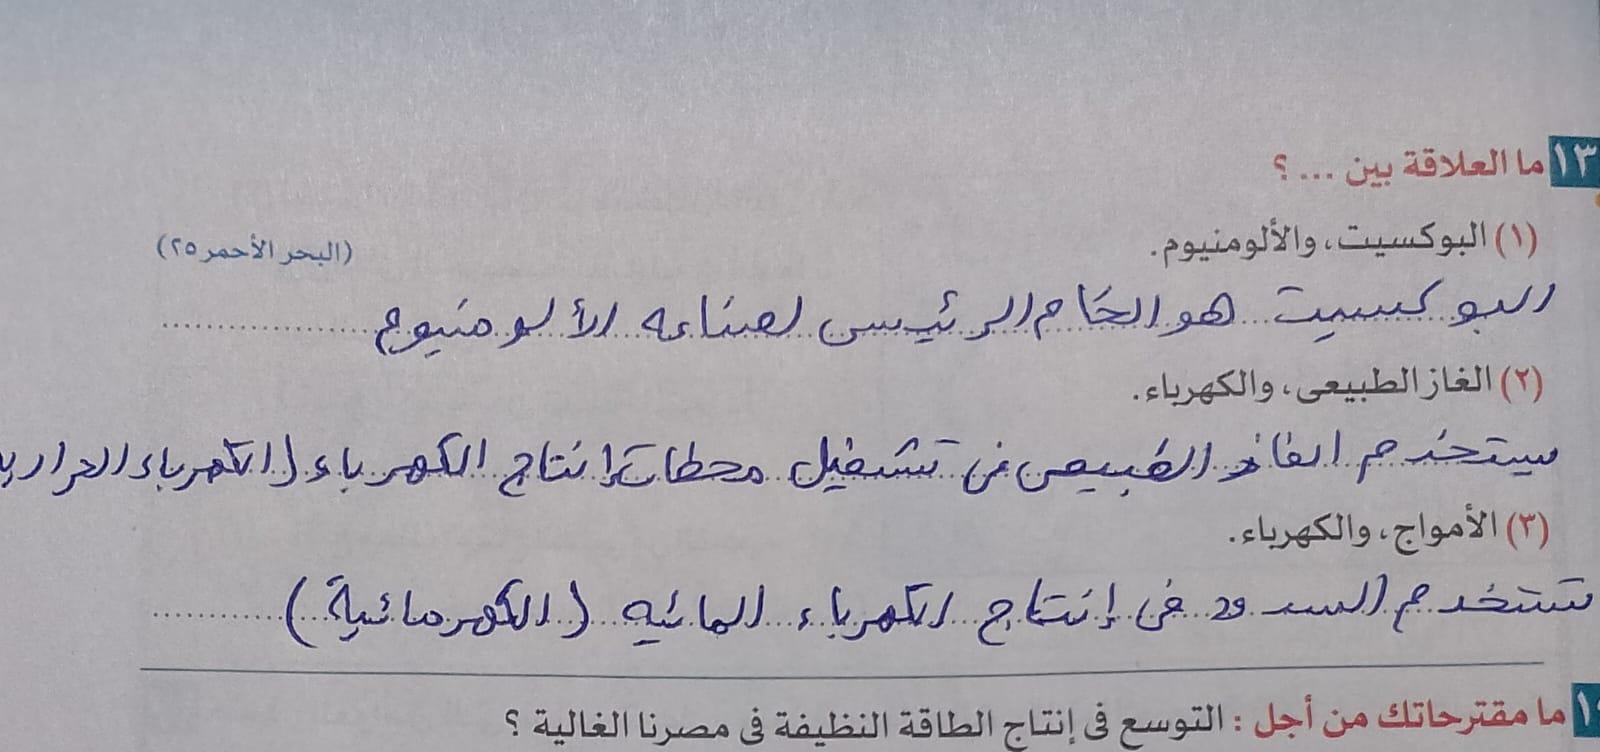 ١٣ ما العلاقة بين ... ؟
(١) البوكسيت، والألومنيوم. (البحر الأحمر ٢٥)
البوكسيت هو الخام الرئيسى لصناعه الألومنيوم
(٢) الغاز الطبيعى، والكهرباء.
يستخدم الغاز الطبيعى فى تشغيل محطات إنتاج الكهرباء (الكهرباء الحرارية
(٣) الأمواج، والكهرباء.
تستخدم السدود فى إنتاج الكهرباء المائيه (الكهرمائية)
ما مقترحاتك من أجل : التوسع فى إنتاج الطاقة النظيفة فى مصرنا الغالية ؟